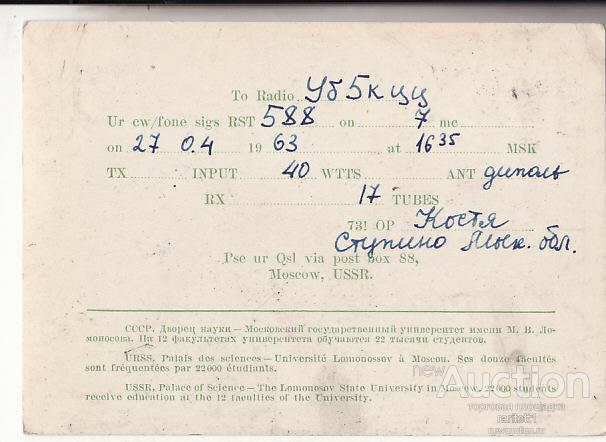 To Radio Уб5кцц
Ur cw/fone sigs RST 588 on 7 mc
on 27 0.4 1963 at 16 35 MSK
TX INPUT 40 WTTS ANT диполь
RX 17 TUBES
73! OP Костя
Ступино Моск. обл.
Pse ur Qsl via post box 88,
Moscow, USSR.
СССР. Дворец науки — Московский государственный университет имени М. В. Ло-
моносова. На 12 факультетах университета обучаются 22 тысячи студентов.
URSS. Palais des sciences — Université Lomonossov à Moscou. Ses douze facultés
sont fréquentées par 22000 étudiants.
USSR. Palace of Science — The Lomonosov State University in Moscow. 22000 students
receive education at the 12 faculties of the University.
new
Auction
торговая площадка